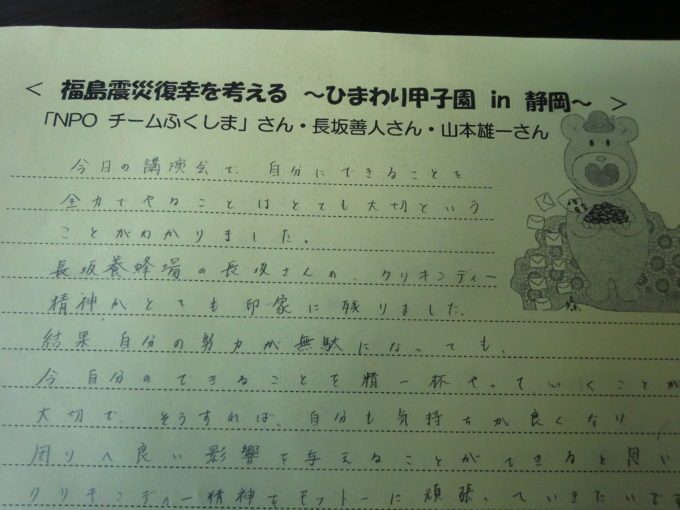 ＜ 福島震災復幸を考える ～ひまわり甲子園 in 静岡～ ＞
「NPO チームふくしま」さん・長坂善人さん・山本雄一さん
今日の講演会で、自分にできることを
全力でやることはとても大切という
ことがわかりました。
長坂養蜂場の長坂さんの、クリキンディー
精神がとても印象に残りました。
結果 自分の努力が無駄になっても、
今自分のできることを精一杯やっていくことが
大切で、そうすれば、自分も気持ちが良くなり
周りへ良い影響を与えることができると思い
クリキンディー精神をモットーに頑張っていきたいです